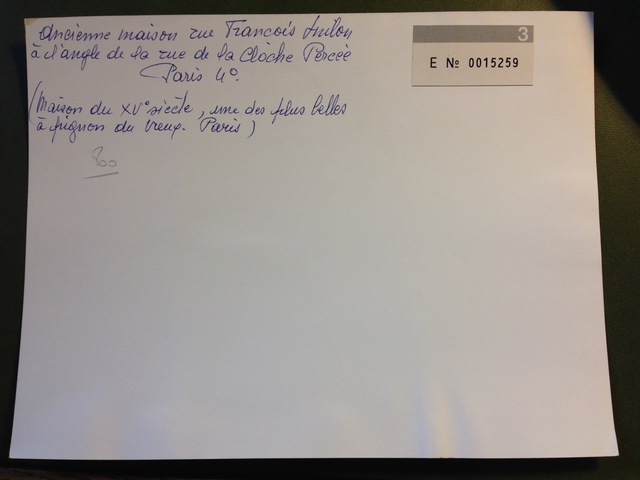 Ancienne maison rue François Miron
à l'angle de la rue de la Cloche Percée
Paris 4°.
(Maison du XV° siècle, une des plus belles
à pignon du vieux. Paris)
800
3
E No 0015259